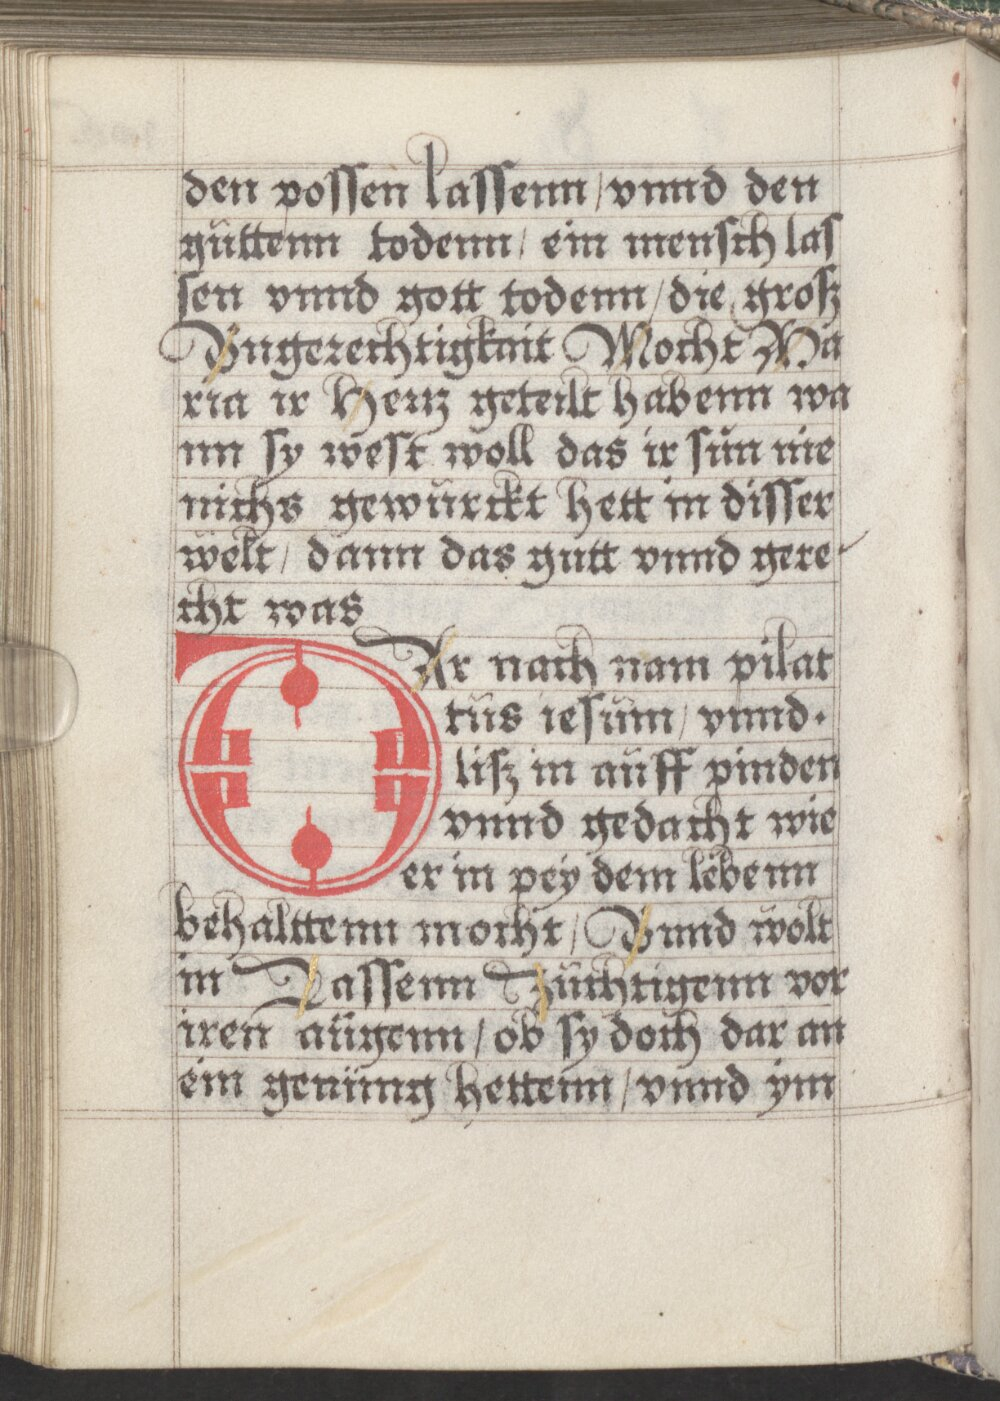 den possen lassenn / vnnd den
güttenn todenn / ein mensch las
sen vnnd gott todenn / die groß
Vngerechtigkait Mocht Ma
ria ir Hertz geteilt habenn wa
nn sy west woll das ir sün nie
nichs gewürckt hett in disser
welt / dann das gutt vnnd gere
cht was
DAr nach nam pilat
tüs iesüm / vnnd ·
lisz in aüff pinden
vnnd gedacht wie
er in pey dem lebenn
behalttenn mocht / Vnnd wolt
in Lassenn Züchtigenn vor
iren aügenn / ob sy doch dar an
ein genüng hettenn / vnnd ym